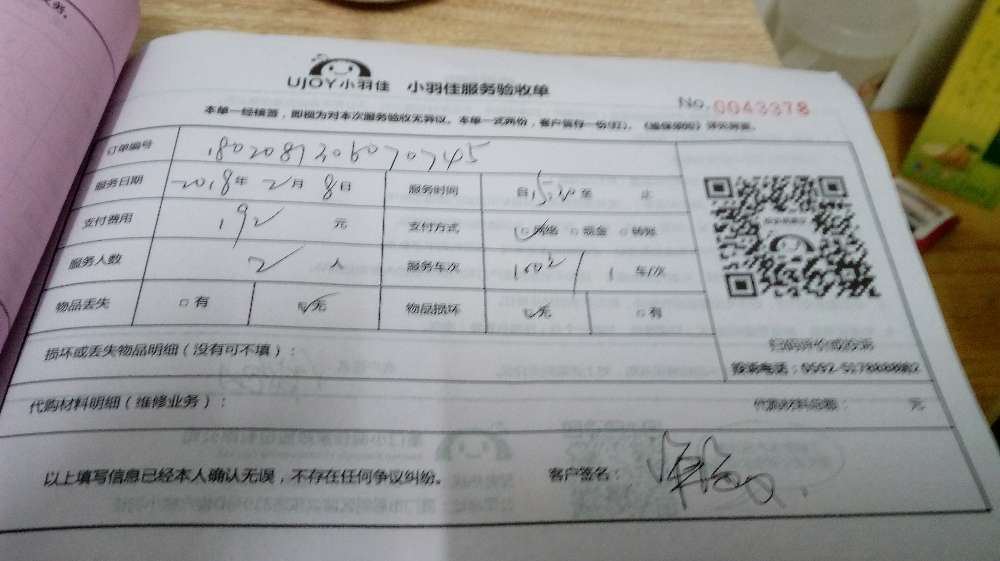 UJOY小羽佳 小羽佳服务验收单
No. 0043378
本单一经核签，即视为对本次服务验收无异议。本单一式两份，客户留存一份(红)。
订单编号 1802081306070745
服务日期 2018年2月8日 服务时间 自15:30至 止
支付费用 192 元 支付方式 网络 现金 转账
服务人数 2 人 服务车次 1 车/次
物品丢失 □有 ☑无 物品损坏 ☑无 □有
扫码评价或投诉
损坏或丢失物品明细（没有可不填）：
投诉电话：0592-
代购材料明细（维修业务）： 代购材料总额： 元
以上填写信息已经本人确认无误，不存在任何争议纠纷。 客户签名：